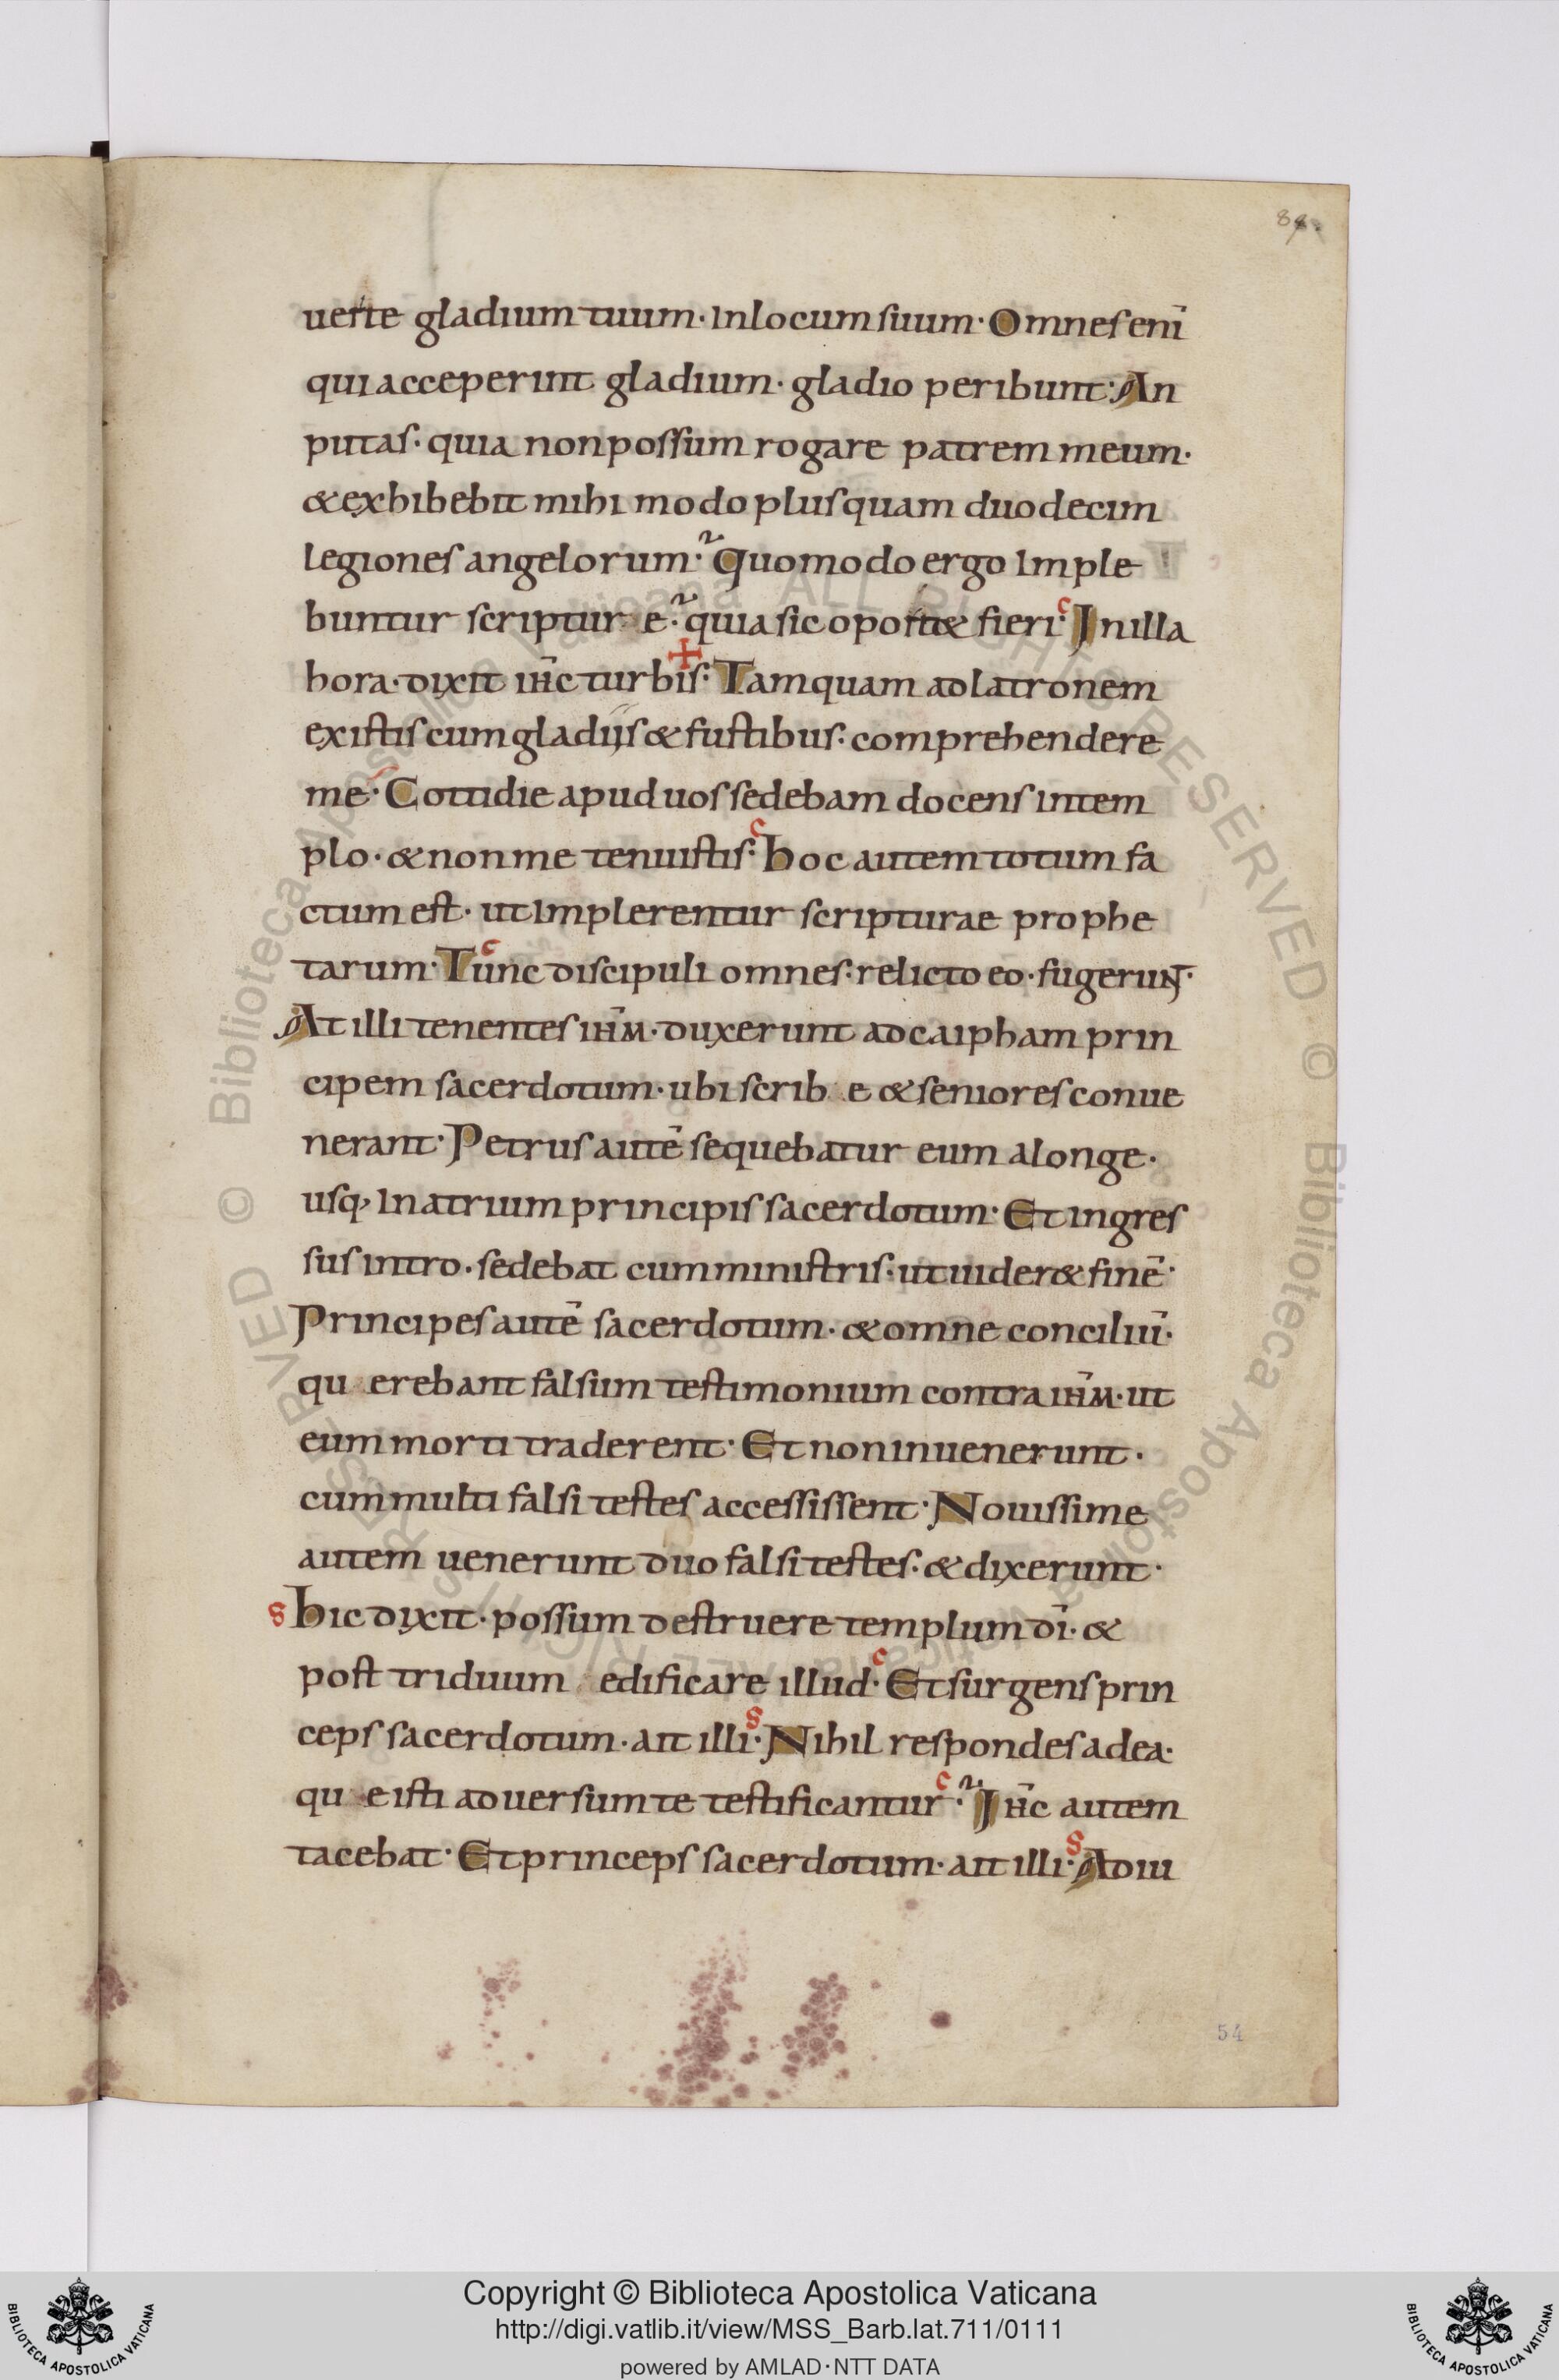 84
uerte gladium tuum· Inlocum suum· Omnes enī
qui acceperint gladium· gladio peribunt· An
putas· quia non possum rogare patrem meum·
& exhibebit mihi modo plus quam duodecim
legiones angelorum· Quomodo ergo Imple
buntur scriptur e· quia sic oport& fieri· c In illa
hora· dixit ihc̄ turbis· + Tamquam ad latronem
existis cum gladiis & fustibus· comprehendere
me· Cottidie apud uos sedebam docens in tem
plo· & non me tenuistis· c hoc autem totum fa
ctum est· ut Implerentur scripturae prophe
tarum· Tunc c discipuli omnes· relicto eo· fugerunt·
At illi tenentes ihm̄· duxerunt ad caipham prin
cipem sacerdotum· ubi scrib e & seniores conue
nerant· Petrus autē sequebatur eum a longe·
usq; In atrium principis sacerdotum· Et ingres
sus intro· sedebat cum ministris· ut uider& finē·
Principes autē sacerdotum· & omne conciliū·
qu erebant falsum testimonium contra ihm̄· ut
eum morti traderent· Et non inuenerunt·
cum multi falsi testes accessissent· Nouissime
autem uenerunt duo falsi testes· & dixerunt·
s hic dixit· possum destruere templum dī· &
post triduum edificare illud· c Et surgens prin
ceps sacerdotum· ait illi· s Nihil respondes ad ea·
qu e isti aduersum te testificantur· c Ihc̄ autem
tacebat· Et princeps sacerdotum· ait illi· s Adiu
54
© Biblioteca Apostolica Vaticana ALL RIGHTS RESERVED
Copyright © Biblioteca Apostolica Vaticana
http://digi.vatlib.it/view/MSS_Barb.lat.711/0111
powered by AMLAD·NTT DATA
BIBLIOTECA APOSTOLICA VATICANA
BIBLIOTECA APOSTOLICA VATICANA